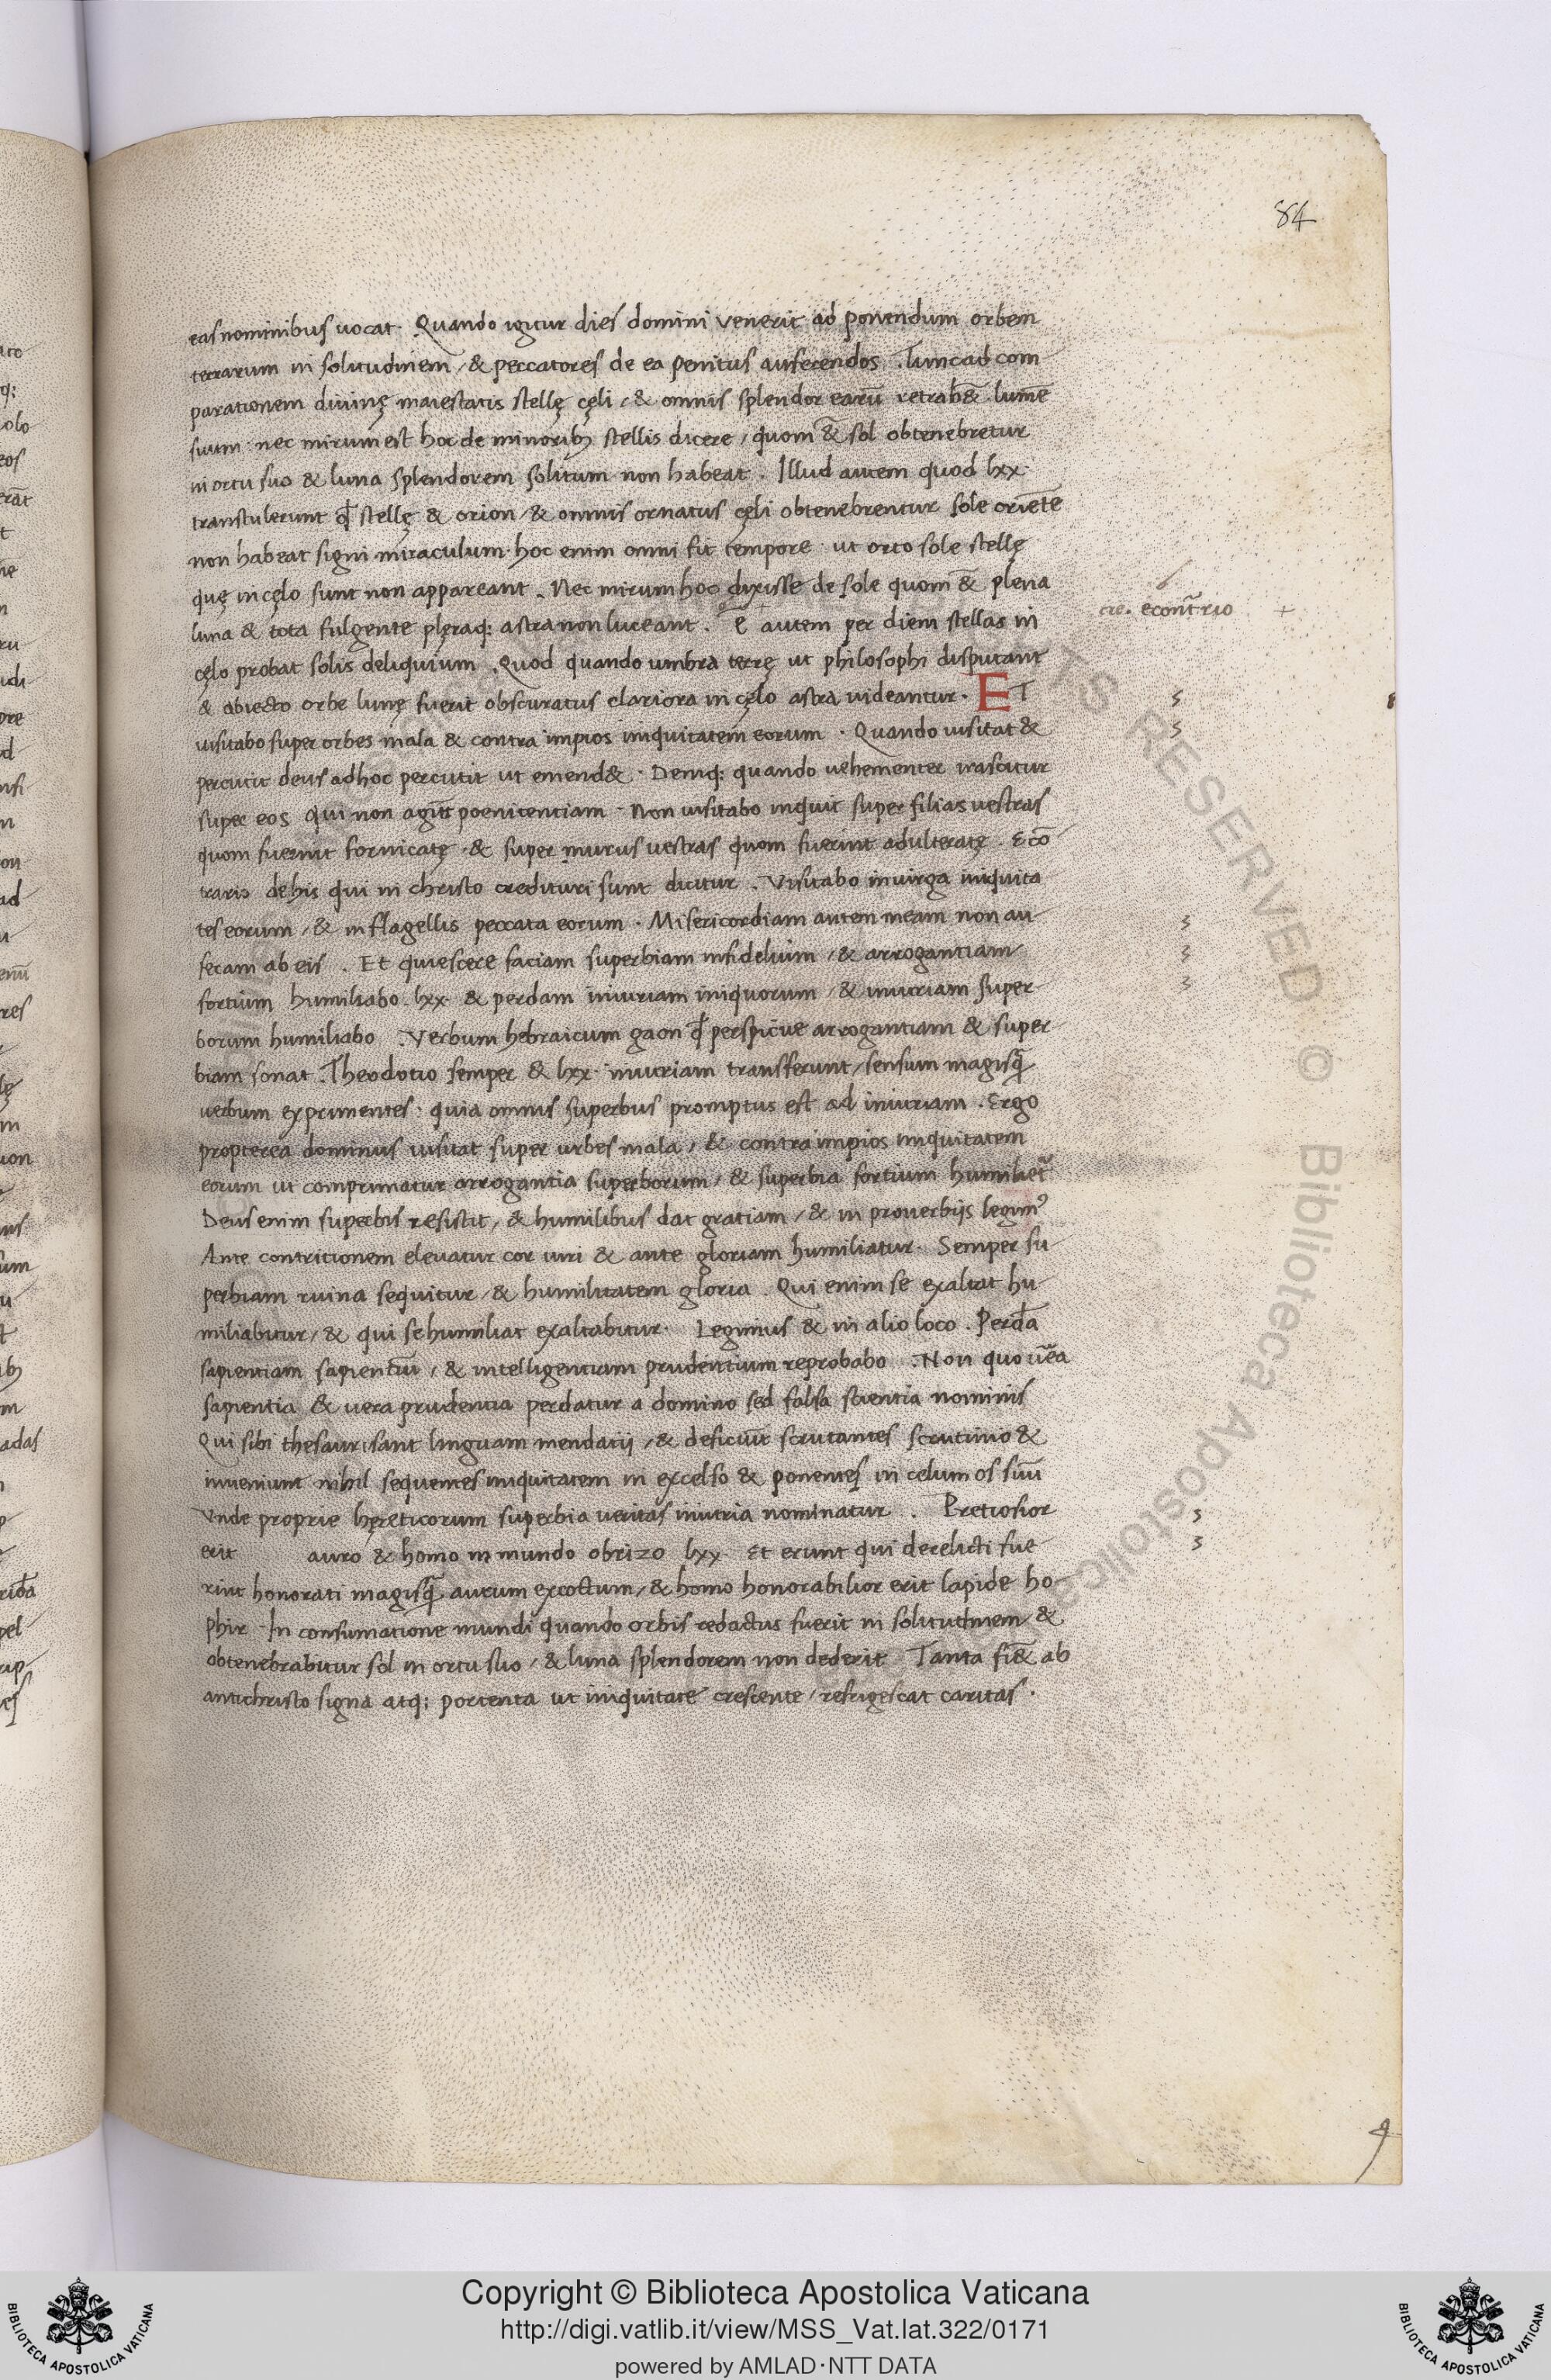 84
eas nominibus uocat. Quando igitur dies domini venerit ad ponendum orbem
terrarum in solitudinem, & peccatores de ea penitus auferendos. Tunc ad com
parationem diuinę maiestatis stellę cęli, & omnis splendor earū retrah&̄ lumē
suum. nec mirum est hoc de minorib; stellis dicere, quom &̄ sol obtenebretur
in ortu suo & luna splendorem solitum non habeat. Illud autem quod lxx.
transtulerunt qđ stellę & orion, & omnis ornatus cęli obtenebrentur sole oriēte
non habeat signi miraculum. hoc enim omni fit tempore. ut orto sole stellę
quę in cęlo sunt non appareant. Nec mirum hoc dixisse de sole quom &̄ plena
luna & tota fulgente plęraq; astra non luceant. ē autem per diem stellas in
cęlo probat solis deliquium. Quod quando umbra terrę ut philosophi disputant
& obiecto orbe lunę fuerit obscuratus clariora in cęlo astra uideantur. ET
uisitabo super orbes mala & contra impios iniquitatem eorum. Quando uisitat &
percutit deus adhoc percutit ut emend&. Deniq; quando uehementer irascitur
super eos qui non agūt poenitentiam. Non uisitabo inquit super filias uestras
quom fuerint fornicatę, & super nurus uestras quom fuerint adulteratę. Ecō
trario de his qui in christo credituri sunt dicitur. Visitabo in uirga iniquita
tes eorum, & in flagellis peccata eorum. Misericordiam autem meam non au
feram ab eis. Et quiescere faciam superbiam infidelium, & arrogantiam
fortium humiliabo. lxx. & perdam iniuriam iniquorum, & iniuriam super
borum humiliabo. Verbum hebraicum gaon qđ perspicue arrogantiam & super
biam sonat. Theodotio semper & lxx. iniuriam transferunt, sensum magisq̄
uerbum exprimentes. quia omnis superbus promptus est ad iniuriam. Ergo
propterea dominus uisitat super urbes mala, & contra impios iniquitatem
eorum ut comprimatur arrogantia superborum, & superbia fortium humiliet̃
Deus enim superbis resistit, & humilibus dat gratiam, & in prouerbijs legim'
Ante contritionem eleuatur cor uiri & ante gloriam humiliatur. Semper su
perbiam ruina sequitur, & humilitatem gloria. Qui enim se exaltat hu
miliabitur, & qui se humiliat exaltabitur. Legimus & in alio loco. Perdā
sapientiam sapientiū, & intelligentiam prudentium reprobabo. Non quo uēa
sapientia & uera prudentia perdatur a domino sed falsa scientia nominis
Qui sibi thesaurisant linguam mendacij, & deficiūt scrutantes scrutinio &
inueniunt nihil sequentes iniquitatem in excelso & ponentes in celum os suū
Vnde proprie hęreticorum superbia ueritas iniuria nominatur. Pretiosior
erit auro & homo in mundo obrizo lxx. Et erunt qui derelicti fue
rint honorati magisq̄ aurum excoctum, & homo honorabilior erit lapide ho
phir. In consumatione mundi quando orbis redactus fuerit in solitudinem &
obtenebrabitur sol in ortu suo, & luna splendorem non dederit. Tanta fi&̄ ab
antichristo signa atq; portenta ut iniquitate crescente, refrigescat caritas.
econtr̃rio
RESERVED © Biblioteca Apostolica
Copyright © Biblioteca Apostolica Vaticana
http://digi.vatlib.it/view/MSS_Vat.lat.322/0171
powered by AMLAD·NTT DATA
BIBLIOTECA APOSTOLICA VATICANA
BIBLIOTECA APOSTOLICA VATICANA